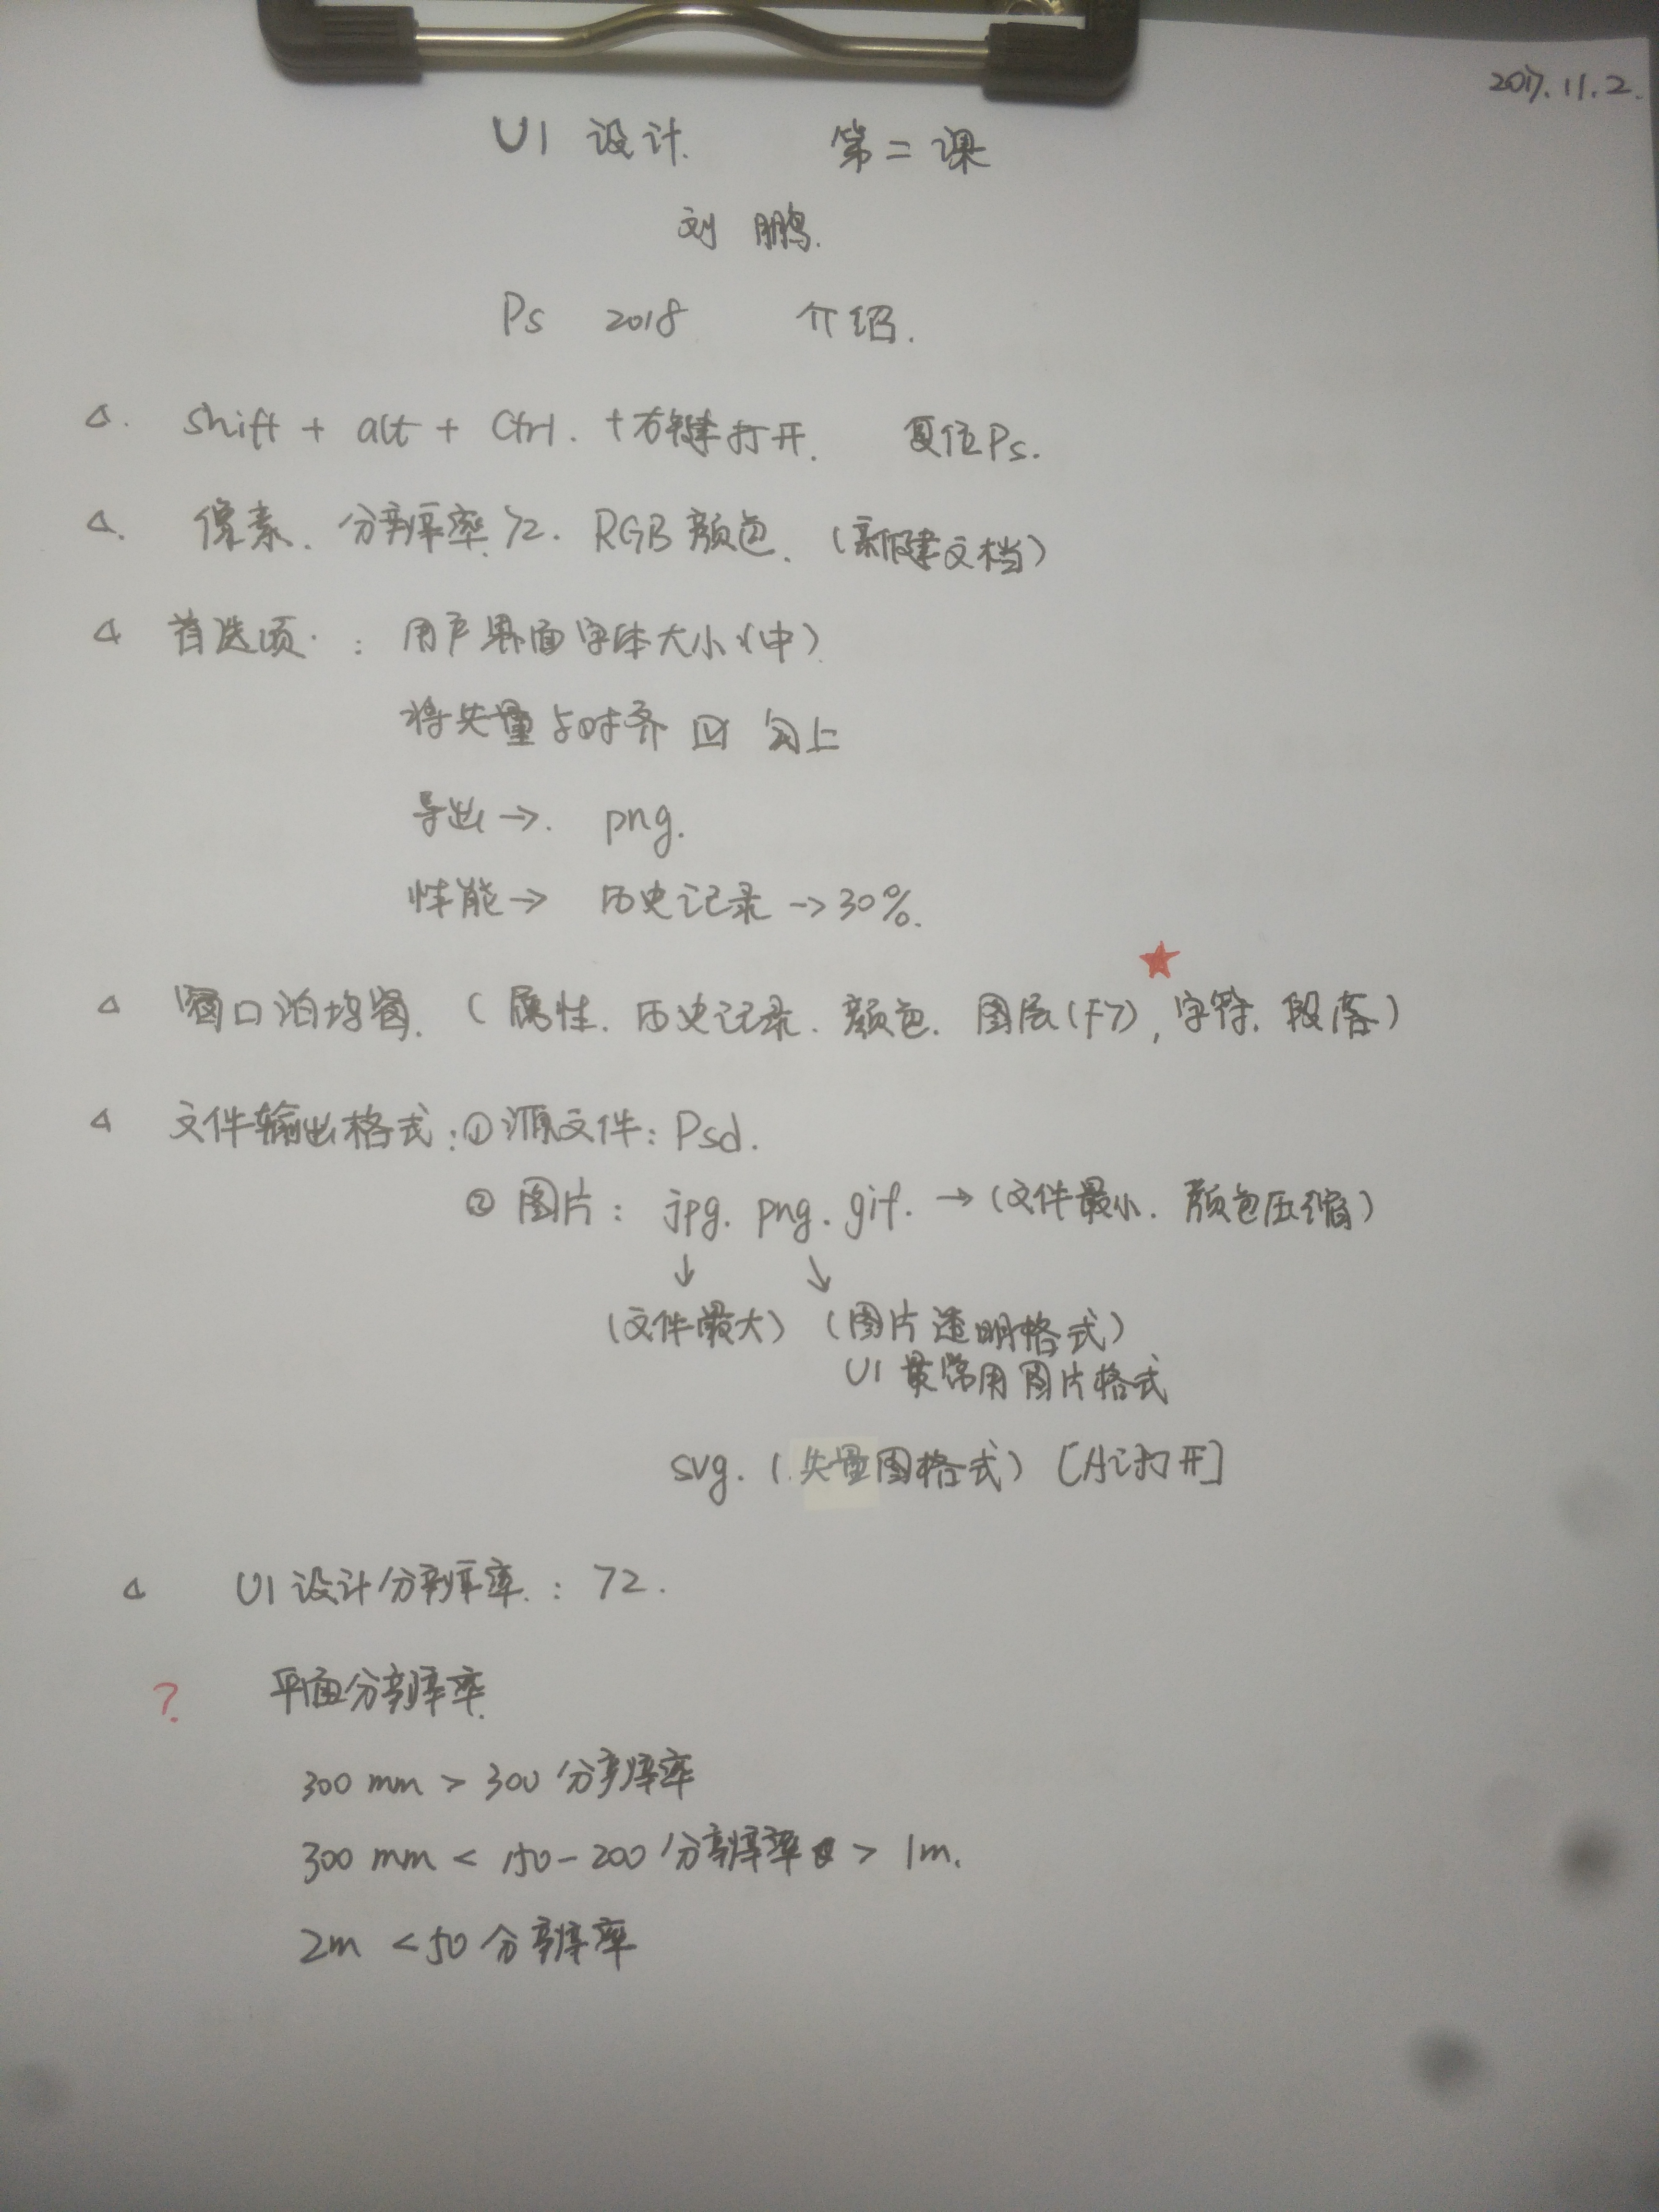 2017.11.2.
UI 设计. 第二课
刘 鹏.
Ps 2018 介绍.
△. shift + alt + Ctrl. + 右键打开. 复位Ps.
△. 像素. 分辨率.72. RGB颜色. (新建文档)
△ 首选项. : 用户界面字体大小(中)
将矢量与对齐 ☑ 勾上
导出 →. png.
性能 → 历史记录 → 30%.
★
△ 窗口泊坞窗. ( 属性. 历史记录. 颜色. 图层(F7), 字符. 段落)
△ 文件输出格式:① 源文件: Psd.
② 图片: jpg. png. gif. → (文件最小. 颜色压缩)
↓ ↘
(文件最大) (图片透明格式)
UI 最常用图片格式
svg. (矢量图格式) [Ai打开]
△ UI 设计分辨率. : 72.
? 平面分辨率.
300 mm > 300 分辨率
300 mm < 150-200 分辨率 > 1m.
2m < 50 分辨率